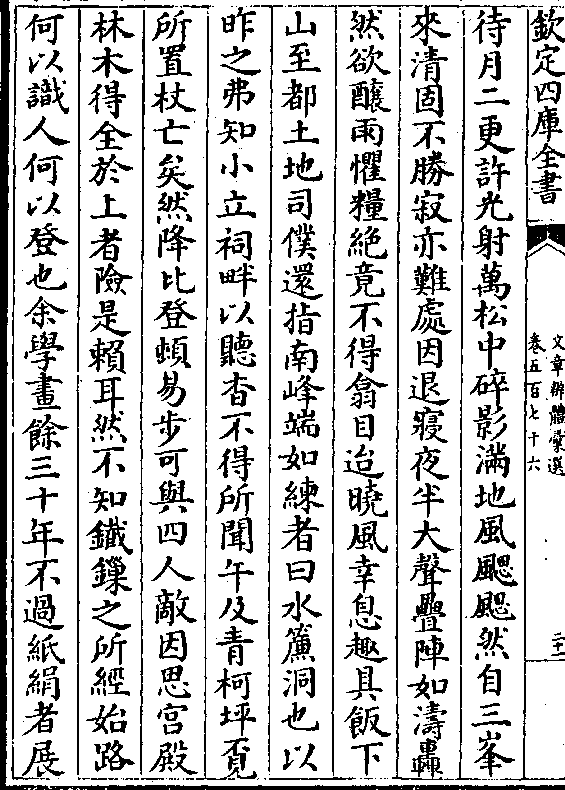 欽定四庫全書
文章辨體彙選
卷五百七十六
二十一
待月二更許光射萬松中碎影滿地風颸颸然自三峯
來清固不勝寂亦難處因退寢夜半大聲疊陣如濤轟
然欲釀雨懼糧絶竟不得翕目迨曉風幸息趣具飯下
山至都土地司僕還指南峰端如練者曰水簾洞也以
昨之弗知小立祠畔以聽杳不得所聞午及青柯坪覓
所置杖亡矣然降比登頓易步可與四人敵因思宮殿
林木得全於上者險是賴耳然不知鐵鏁之所經始路
何以識人何以登也余學畫餘三十年不過紙絹者展